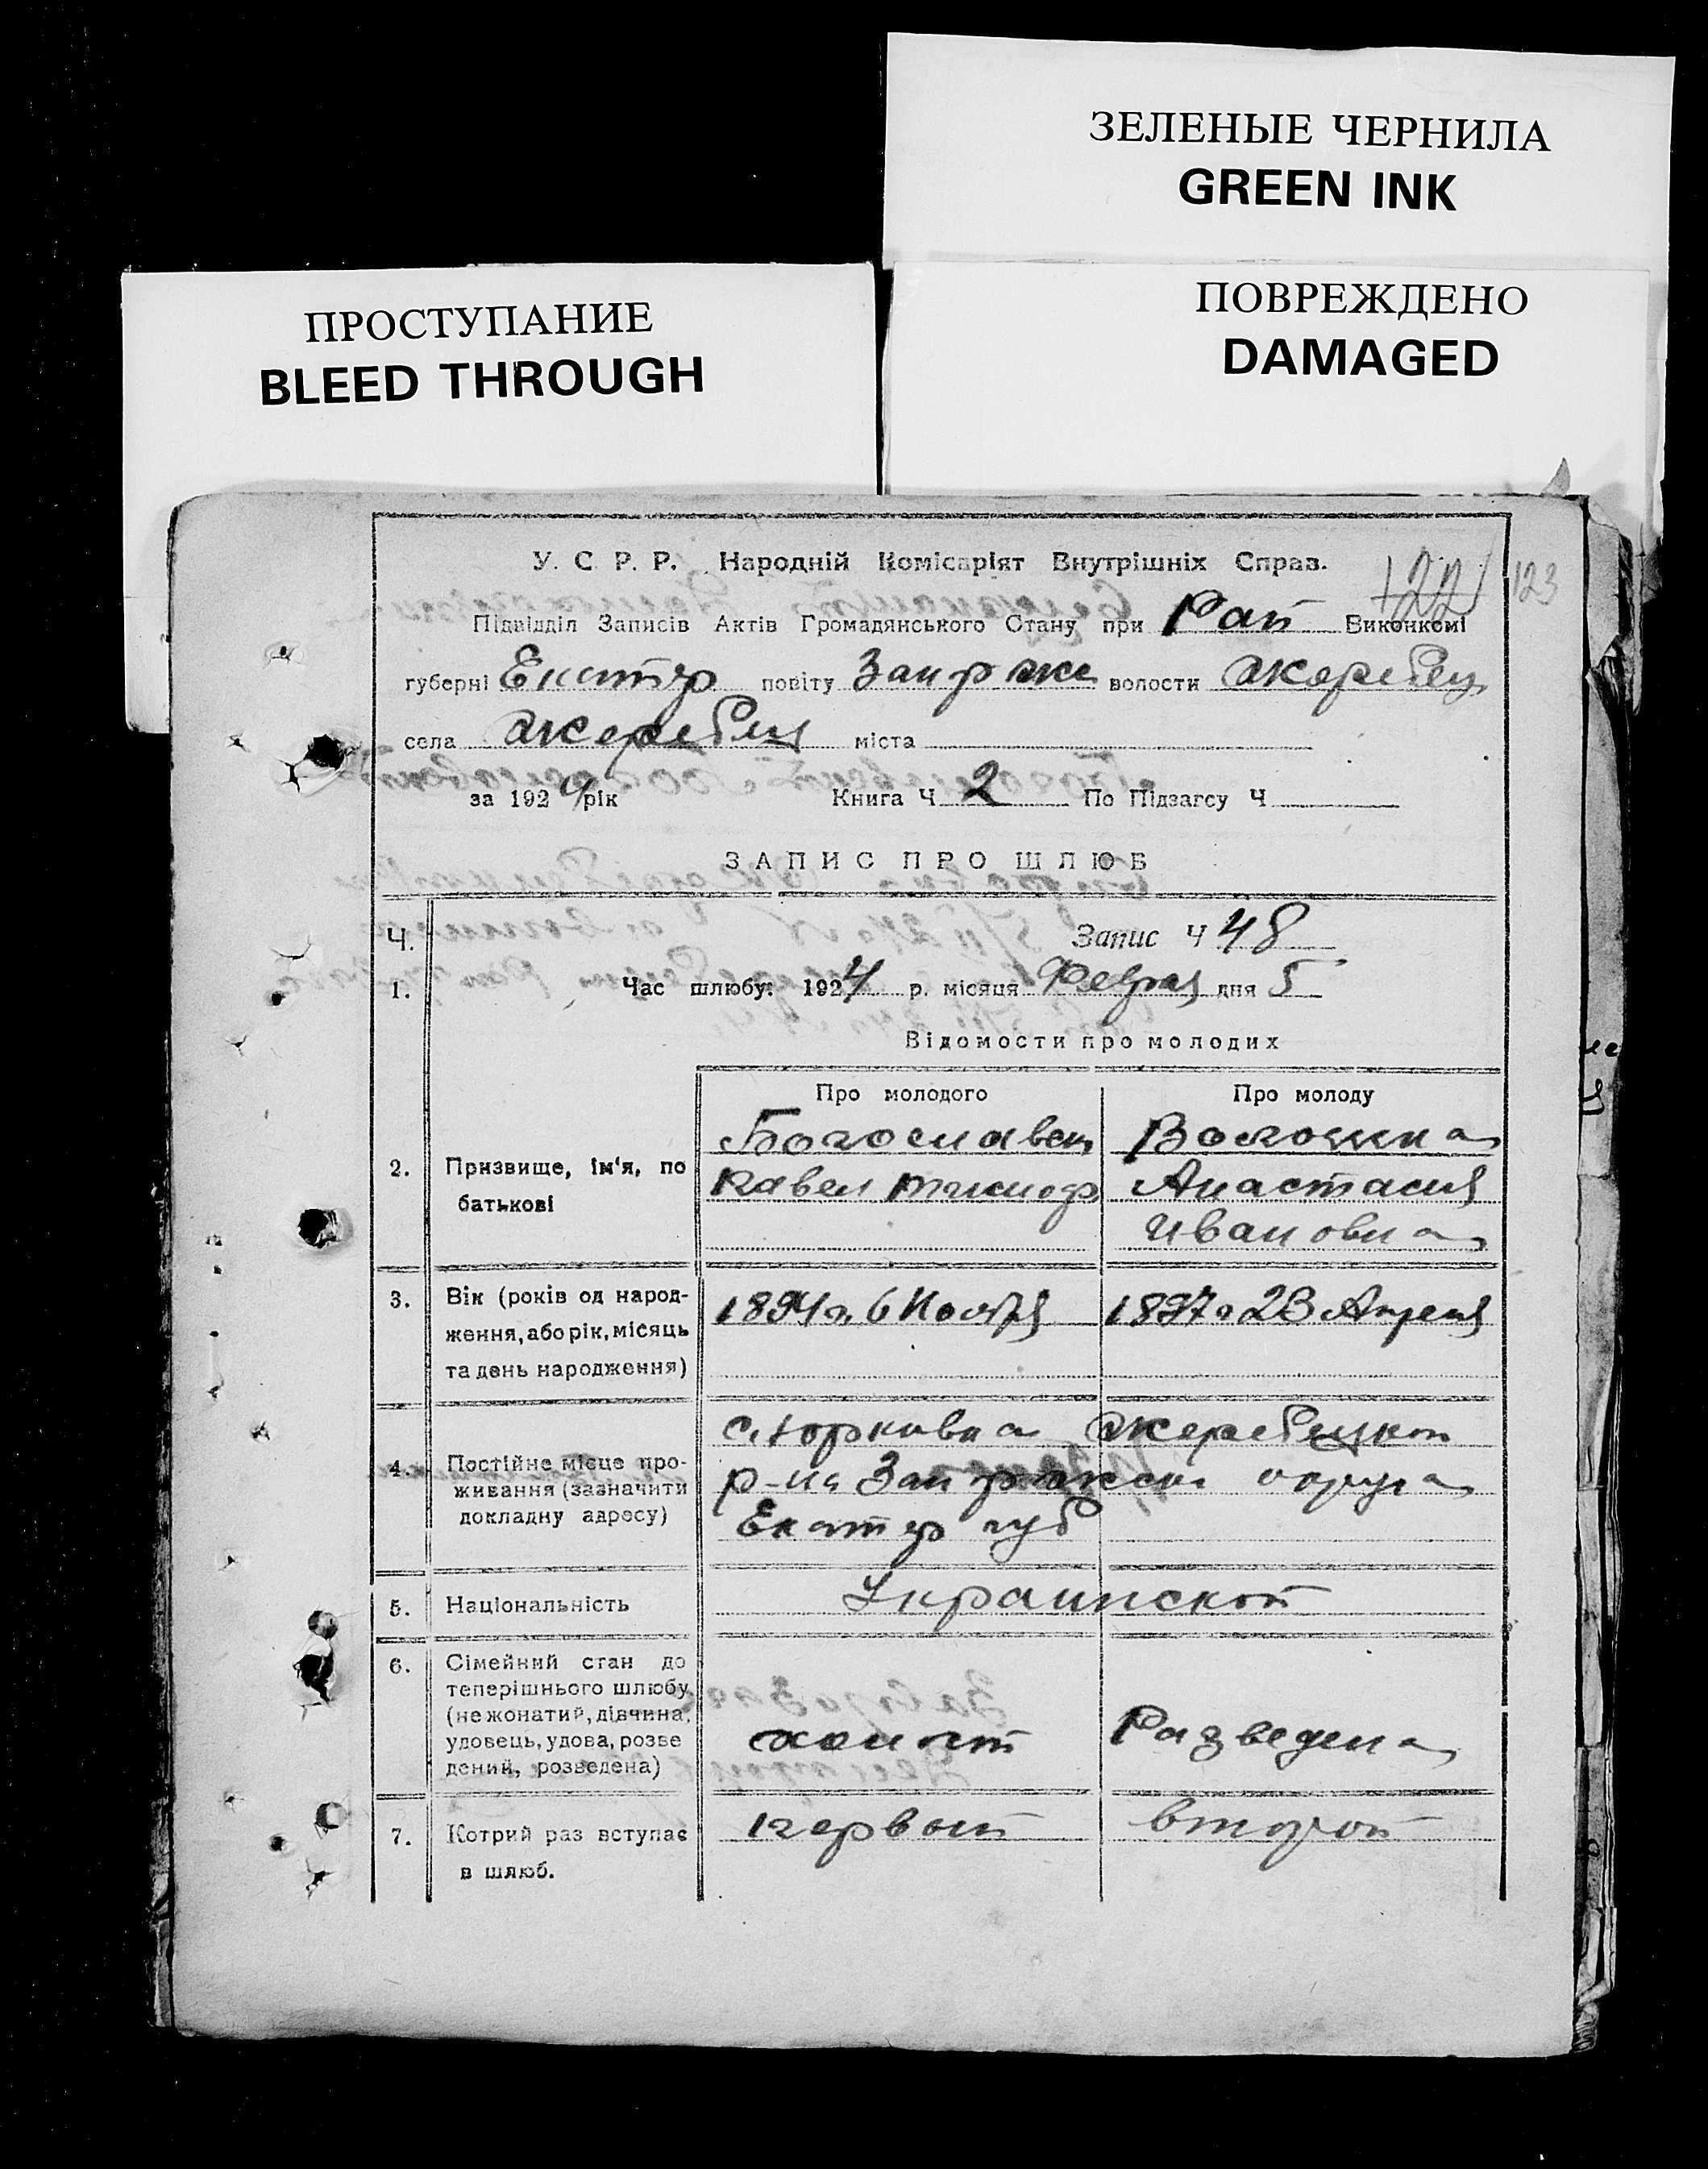 ЗЕЛЕНЫЕ ЧЕРНИЛА
GREEN INK
ПРОСТУПАНИЕ
BLEED THROUGH
ПОВРЕЖДЕНО
DAMAGED
У. С. Р. Р. Народній Комісаріят Внутрішніх Справ.
122 123
Підвідділ Записів Актів Громадянського Стану при Рай Виконкомі
губерні Екатер повіту Запорож волости Жеребец
села Жеребец міста
за 1924 рік Книга Ч 2 По Підзагсу Ч
ЗАПИС ПРО ШЛЮБ
Ч. Запис Ч 48
1. Час шлюбу: 1924 р. місяця Февраля дня 5
Відомости про молодих
Про молодого Про молоду
2. Призвище, ім'я, по батькові
Богославск
Павел Тимоф
Волошина
Анастасия
Ивановна
3. Вік (років од народ-
ження, або рік, місяць
та день народження)
1894 г. 6 Ноября 1897 г 23 Апреля
4. Постійне місце про-
живання (зазначити
докладну адресу)
с. Юрковка Жеребецкой
р-на Запорожской округа
Екатер губ
5. Національність Украинской
6. Сімейний стан до
теперішнього шлюбу
(не жонатий, дівчина,
удовець, удова, розве
дений, розведена)
холост Разведена
7. Котрий раз вступає
в шлюб.
первый второй